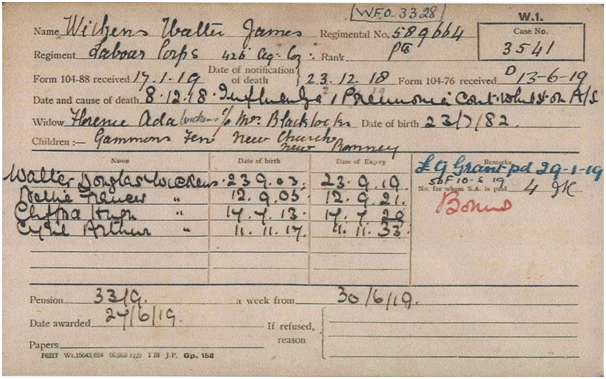 W.F.O. 3328
W.1.
Name Wickens Walter James Regimental No. 589664
Case No. 3541
Regiment Labour Corps 426 Ag. Coy: Rank Pte
Form 104-88 received 17.1.19 Date of notification of death 23.12.18 Form 104-76 received D 13-6-19
Date and cause of death 8.12.18. Influenza & Pneumonia Cont. whilst on A/S
Widow Florence Ada (Wickens) c/o Mrs. Blacklocks Date of birth 23/7/82.
Children :— Gammons Fen New Church
New Romney
Name Date of birth Date of Expiry Remarks
£9 Grant pd 29-1-19
Walter Douglas Wickens 23.9.03. 23.9.19.
SRF 10-6-19
No. for whom S.A. is paid 4
Nellie Frances " 12.9.05. 12.9.21.
Bonus
Clifford Hugh " 17.7.13. 17.7.29
Cyril Arthur " 11.11.17. 11.11.33.
Pension 33/9. a week from 30/6/19.
Date awarded 27/6/19.
If refused, reason
Papers
Gp. 168